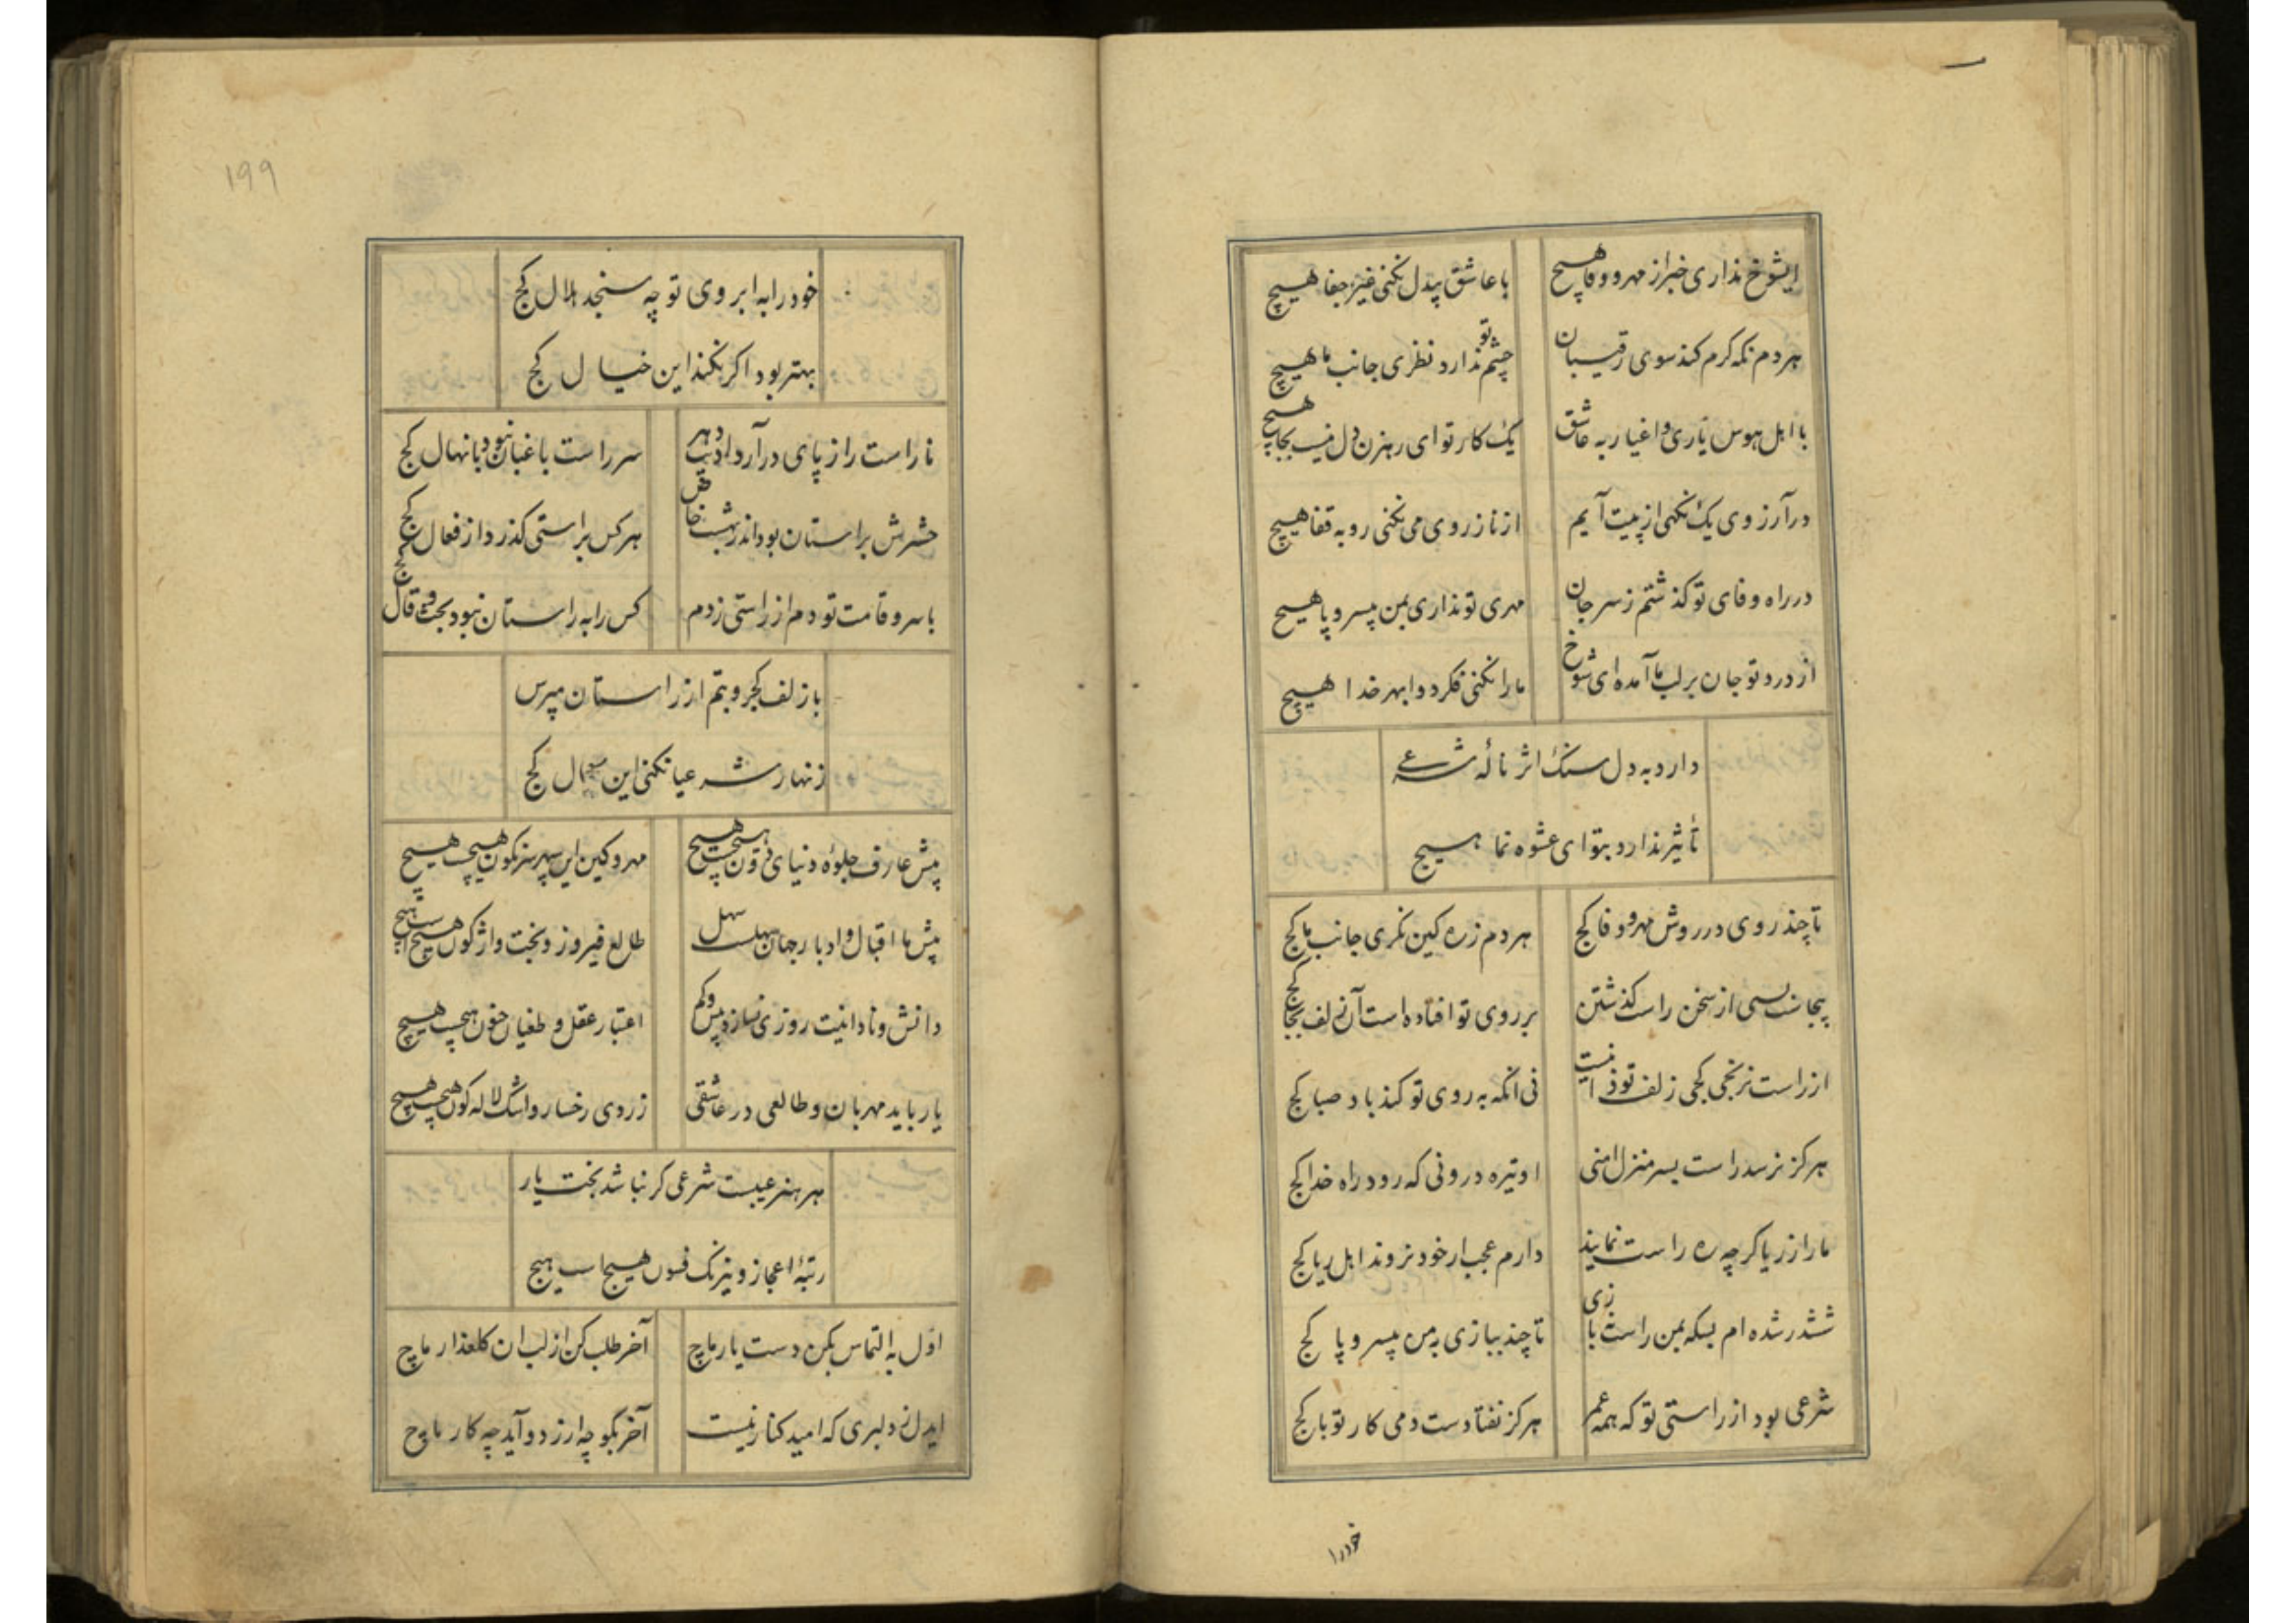 ایشوخ نداری خبر از مهر و وفا هیچ
با عاشق بیدل نکنی غیر جفا هیچ
هر دم نگه گرم کند سوی رقیبان
چشم تو ندارد نظری جانب ما هیچ
با اهل هوس یاری و اغیار به عاشق
یک کار تو ای رهزن دل نیست بجا هیچ
در آرزوی یک نگهی از پیت آیم
از ناز روی می نکنی رو به قفا هیچ
در راه وفای تو گذشتم ز سر جان
مهری تو نداری بمن بیسر و پا هیچ
از درد تو جان بر لب ما آمده ای شوخ
ما را نکنی فکر دوا بهر خدا هیچ
دارد به دل سنگ اثر نالهٔ شرعی
تأثیر ندارد بتو ای عشوه نما هیچ
تا چند روی در روش مهر و وفا کج
هر دم ز ره کین نگری جانب ما کج
بیجاست بسی از سخن راست گذشتن
بر روی تو افتاده است آن زلف بجا کج
از راست نرنجی کجی زلف تو ذاتیست
نی انکه به روی تو کند باد صبا کج
هرگز نرسد راست بسر منزل امنی
او تیره درونی که رود راه خدا کج
ما را ز ریا گرچه ره راست نمایند
دارم عجب ار خود نروند اهل ریا کج
ششدر شده ام بسکه بمن راست نبازی
تا چند ببازی به من بیسر و پا کج
شرعی بود از راستی تو که همه عمر
هرگز نفتادست دمی کار تو با کج
خود را
۱۹۹
خود را به ابروی تو چه سنجد هلال کج
بهتر بود اگر نکند این خیال کج
ناراست را ز پای در آرد ادیب دهر
سر راست باغبان نبود با نهال کج
حشرش براستان بود اندر بهشت خاص
هر کس براستی گذرد از فعال کج
با سرو قامت تو دم از راستی زدم
کس را به راستان نبود بحث و قال کج
با زلف کجرو بتم از راستان مپرس
زنهار شرعیا نکنی این سؤال کج
پیش عارف جلوه دنیای دون هیچست هیچ
مهر و کین این سپهر سرنگون هیچست هیچ
پیش ما اقبال و ادبار جهان سهلست سهل
طالع فیروز و بخت واژگون هیچست هیچ
دانش و نادانیت روزی نسازد بیش و کم
اعتبار عقل و طغیان جنون هیچست هیچ
یار باید مهربان و طالعی در عاشقی
زردی رخسار و اشک لاله گون هیچست هیچ
هر هنر عیبست شرعی گر نباشد بخت یار
رتبهٔ اعجاز و نیرنگ فسون هیچست هیچ
اول به التماس بکن دست یار ماچ
آخر طلب کن از لب ان گلعذار ماچ
ایدل ز دلبری که امید کنار نیست
آخر بگو چه ارزد و آید چه کار ماچ